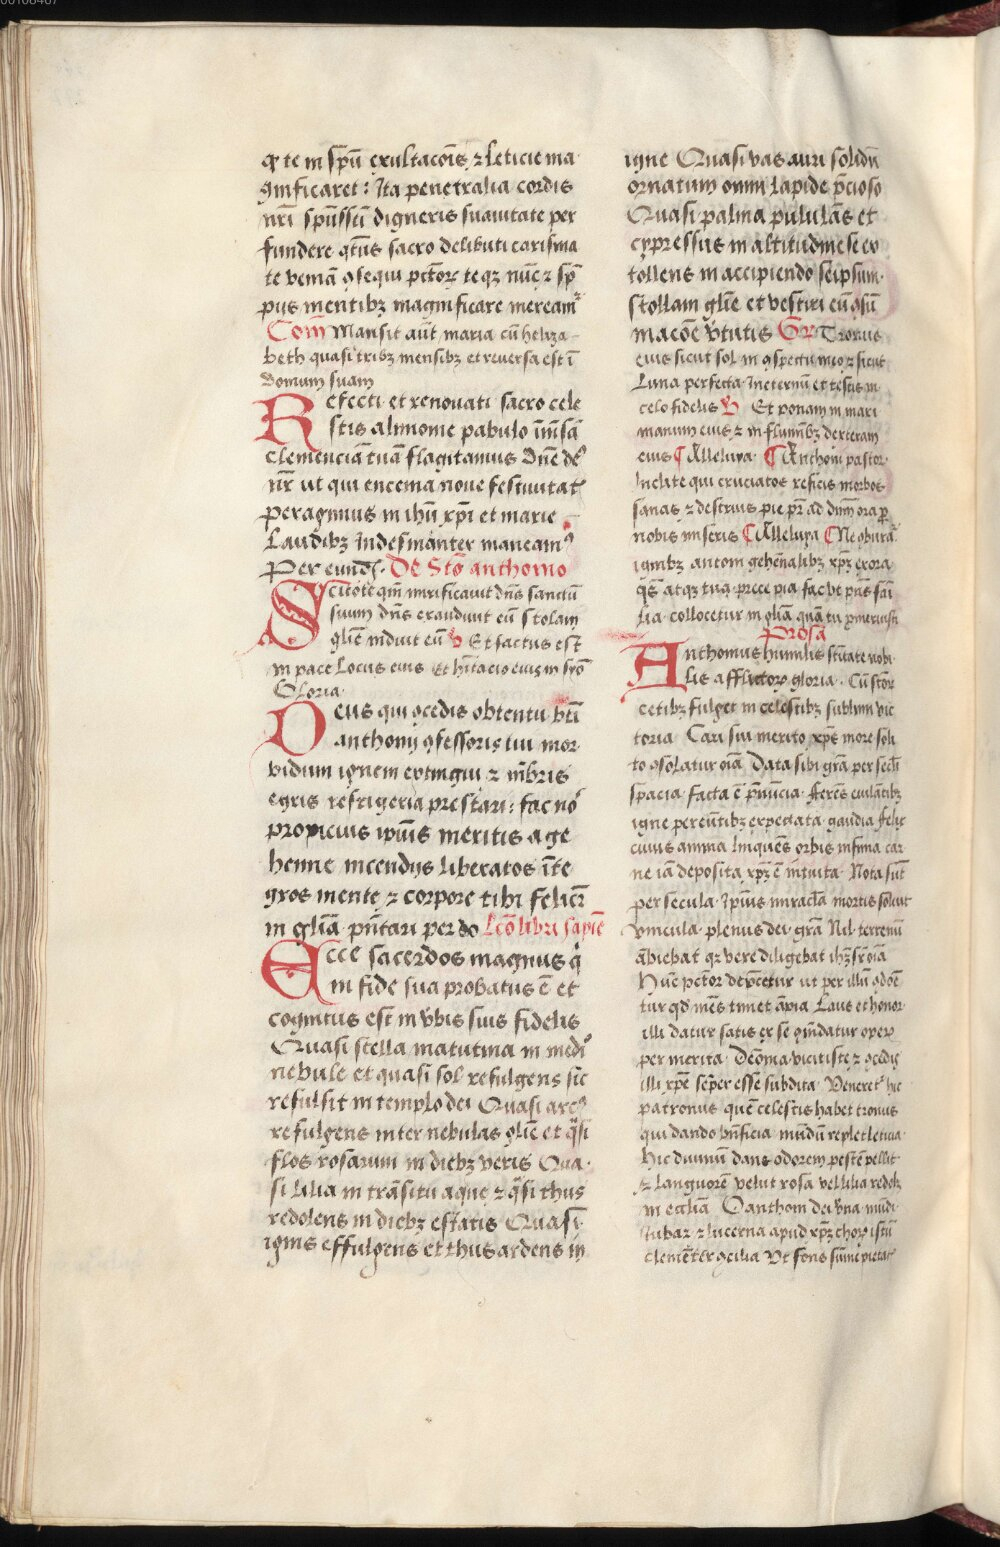 00108467
qͥ te in spū exultacōīs ꝛ leticie ma
gnificaret : Ita penetralia cordis
nrī spūssēī digneris suauitate per
fundere qtꝰ sacro delibuti carisma
te
magnificare mereamᷣ
Com̄ Mansit aūt maria cū heliza
beth quasi tribꝫ mensibꝫ et reuersa est ī
domum suam
Refecti et renouati sacro cele
stis alimonie pabulo īmēsā
clemenciā tuā flagitamus Dn̄e dēꝰ
nr̄ ut qui encenia noue festiuitatꝭ
peragimus in ihū xp̄i et marie
Laudibꝫ Indesinanter maneamꝰ
Per eund De Sto anthonio
Scitote qm̄ mirificauit dn̄s sanctū
suum dn̄s exaudiuit eū stolam
glīe induit eū v Et factus est
in pace Locus eius Et hītacio eius in syō
Gloria
Deus qui ꝯcedis obtentu btī
anthonij ꝯfessoris tui mor
bidum ignem extingui ꝛ mēbris
egris refrigeria prestari : fac nōˢ
propicius ipiūs meritis a ge
henne incendijs liberatos īte
gros mente ꝛ corpore tibi felicr̄
in glīa pn̄tari per do Lcō libri sapiē
Ecce sacerdos magnus q̄
in fide sua probatus ē et
cognitus est in v̄bis suis fidelis
Quasi stella matutina in mediͦ
nebule et quasi sol refulgens sic
refulsit in templo dei Quasi arcꝰ
refulgens inter nebulas glīe et qͣsi
flos rosarum in diebꝫ veris Qua
si lilia in trāsitu aque ꝛ qͣsi thus
redolens in diebꝫ estatis Quasi
ignis effulgens et thus ardens in
igne Quasi vas auri solidū
ornatum omni lapide p̄cioso
Quasi palma pululās et
cypressus in altitudine se ex
tollens in accipiendo seipsum
stollam glīe et vestiri eū ꝯsū
macōe v̄tutis Gr̄ Tronus
eius sicut sol in ꝯspectu meo ꝛ sicut
Luna perfecta In eternū et testis in
celo fidelis v Et ponam in mari
manum eius ꝛ in fluminibꝫ dexteram
eius Alleluya Anthoni pastor
Inclite qui cruciatos reficis morbos
sanas ꝛ destruis pie pr̄ ad dnm̄ ora ꝓ
nobis miseris Alleluya Ne obura
igni antoni gehēnalibꝫ xpm̄ exora
qs̄ atqꝫ tua prece pia fac vt
collocetur in gliam quā tu
Prosa
Anthonius humilis
afflictorꝝ gloria Cū
cetibꝫ fulget in celestibꝫ sublimi vic
toria Cari sui merito xpē more soli
to ꝯsolatur oīa Data sibi grā per secli
spacia facta ē p̄nūcia
igne pereūtibꝫ expectata gaudia felix
cuius anima linquēs orbis infima car
ne iā deposita xpꝫ ē intuita Nota sūt
per secula Ipiūs miracla mortis soluit
vincula plenus dei grā Nil terrenū
ābiebat qꝛ vere diligebat
Hūc
tur qd̄ mēs timet Laus et honor
illi datur satis ex se
per merita
illi xpē semper esse subdita Veneretᷣ hic
patronus quē celestis habet tronus
qui dando bn̄ficia mūdū replet leticia
hic diuinū dans odorem pestē pellit
ꝛ languorē velut rosa vel lilia redolꝫ
in ecclīa O anthoni dei mūdi
Iubar ꝛ lucerna apud xpꝫ
clemēter ꝯcilia Vt fons sūme pietatꝭ